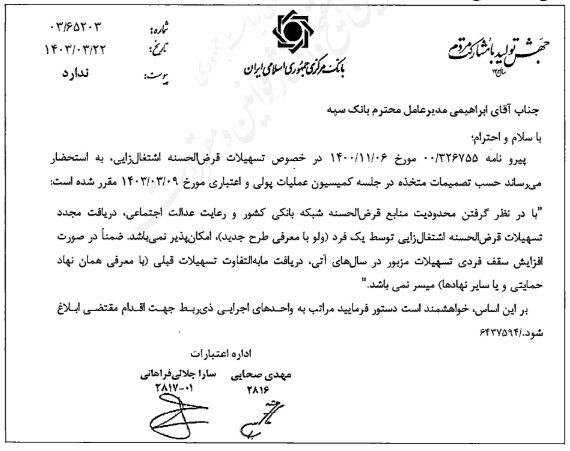 جهش تولید با مشارکت مردم
بانک مرکزی جمهوری اسلامی ایران
شماره: ۰۳/۶۵۲۰۳
تاریخ: ۱۴۰۳/۰۳/۲۲
پیوست: ندارد
جناب آقای ابراهیمی مدیرعامل محترم بانک سپه
با سلام و احترام؛
پیرو نامه ۰۰/۳۲۶۷۵۵ مورخ ۱۴۰۰/۱۱/۰۶ در خصوص تسهیلات قرض‌الحسنه اشتغال‌زایی، به استحضار
می‌رساند حسب تصمیمات متخذه در جلسه کمیسیون عملیات پولی و اعتباری مورخ ۱۴۰۳/۰۳/۰۹ مقرر شده است:
"با در نظر گرفتن محدودیت منابع قرض‌الحسنه شبکه بانکی کشور و رعایت عدالت اجتماعی، دریافت مجدد
تسهیلات قرض‌الحسنه اشتغال‌زایی توسط یک فرد (ولو با معرفی طرح جدید)، امکان‌پذیر نمی‌باشد. ضمناً در صورت
افزایش سقف فردی تسهیلات مزبور در سال‌های آتی، دریافت مابه‌التفاوت تسهیلات قبلی (با معرفی همان نهاد
حمایتی و یا سایر نهادها) میسر نمی باشد."
بر این اساس، خواهشمند است دستور فرمایید مراتب به واحدهای اجرایی ذی‌ربط جهت اقدام مقتضی ابلاغ
شود./۶۴۳۷۵۹۴
اداره اعتبارات
مهدی صحابی سارا جلالی‌فراهانی
۲۸۱۶ ۲۸۱۷-۰۱